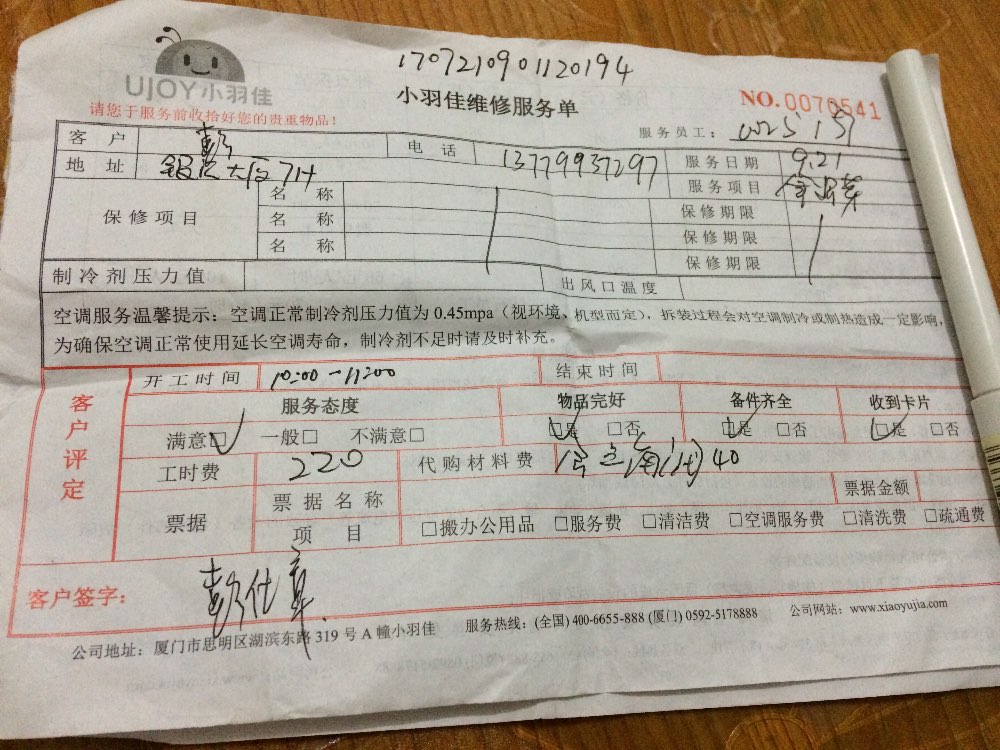 1707210901120194
UJOY小羽佳
小羽佳维修服务单
NO.0070541
请您于服务前收拾好您的贵重物品!
服务员工:
客 户 彭 电 话 13779937297 服务日期 9.21
地 址 大厦7H 服务项目
保修项目 名 称 保修期限
名 称 保修期限
名 称 保修期限
制冷剂压力值 出风口温度
空调服务温馨提示:空调正常制冷剂压力值为 0.45mpa(视环境、机型而定),拆装过程会对空调制冷或制热造成一定影响,
为确保空调正常使用延长空调寿命,制冷剂不足时请及时补充。
客户评定
开工时间 10:00-11:00 结束时间
服务态度 物品完好 备件齐全 收到卡片
满意□ 一般□ 不满意□ □是 □否 □是 □否 □是 □否
工时费 220 代购材料费 40
票据 票据名称 票据金额
项 目 □搬办公用品 □服务费 □清洁费 □空调服务费 □清洗费 □疏通费
客户签字: 彭仕章
公司地址:厦门市思明区湖滨东路 319 号 A 幢小羽佳 服务热线:(全国) 400-6655-888 (厦门) 0592-5178888 公司网站:www.xiaoyujia.com